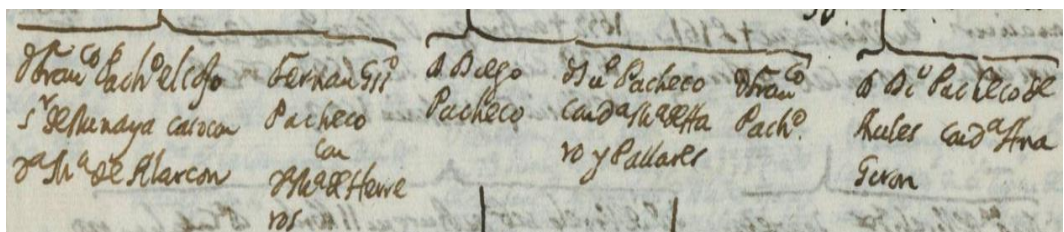 d Fran^co Pach^o el cojo
s^r de Minaya caso con
d^a M^a de Alarcon
Fernan Gss^o
Pacheco
con
d^a M^a de Herre
ros
D Diego
Pacheco
d Ju^o Pacheco
con d^a M^a de Ha
ro y Pallares
d Fran^co
Pach^o.
D Di^o Pacheco de
Aviles con d^a Ana
Giron